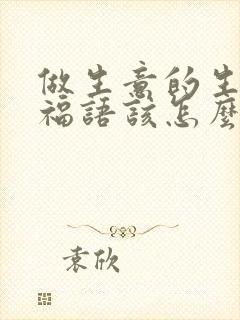 做生意的生
福語該怎麼
袁欣